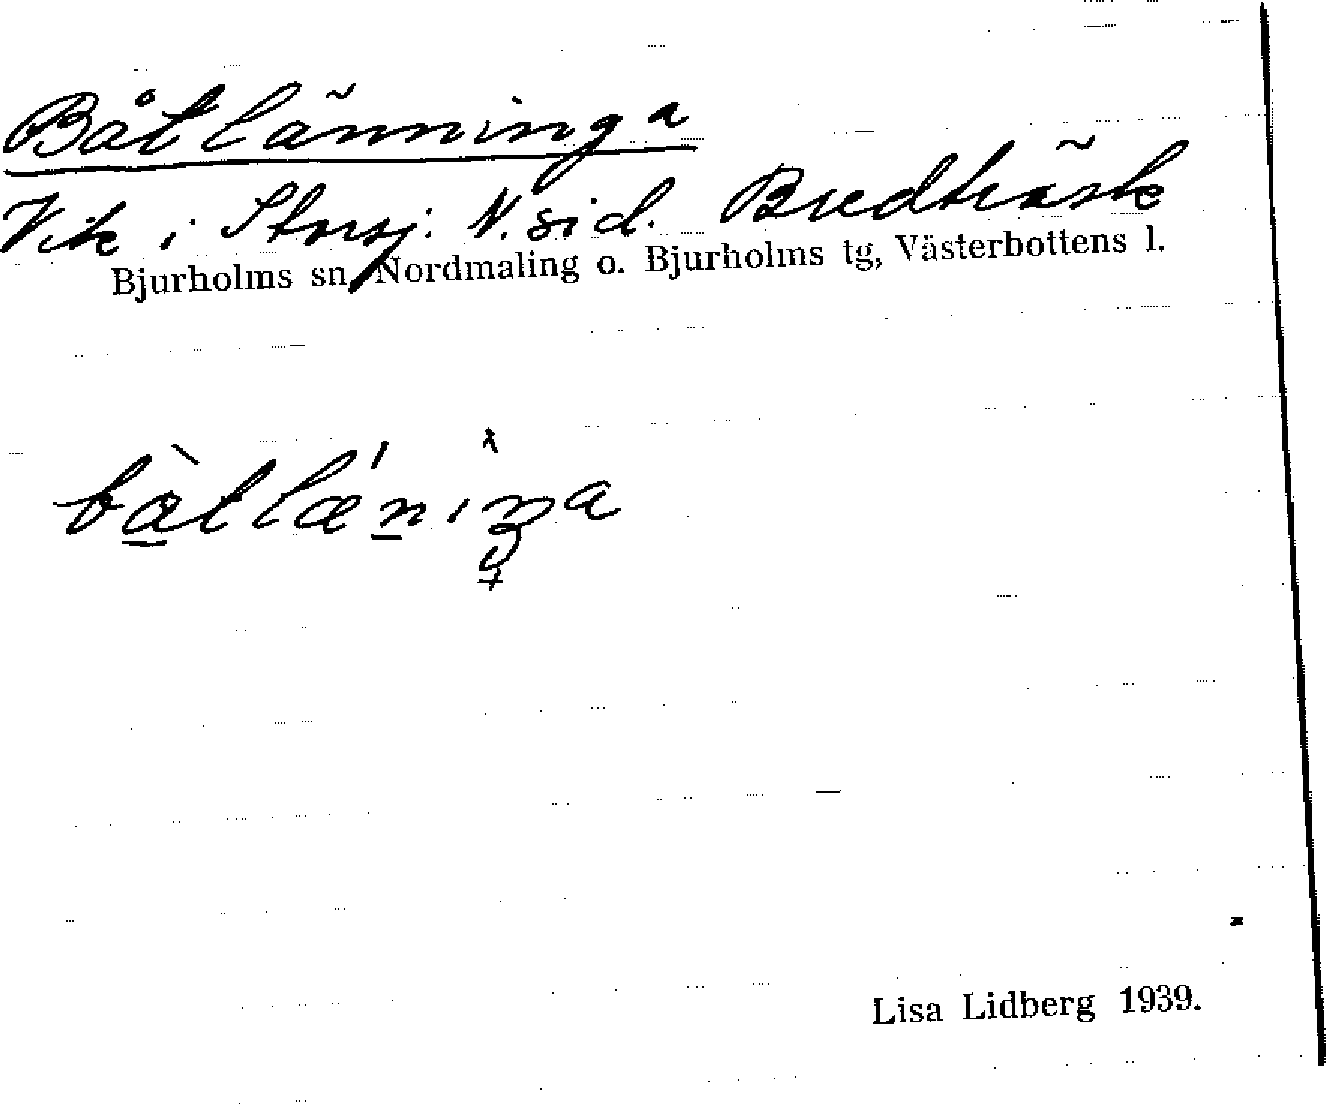 Båtlänninga
Vik i Storsj. N. sid. Bredträsk
Bjurholms sn, Nordmaling o. Bjurholms tg, Västerbottens l.
bàtlǽniŋa
Lisa Lidberg 1939.